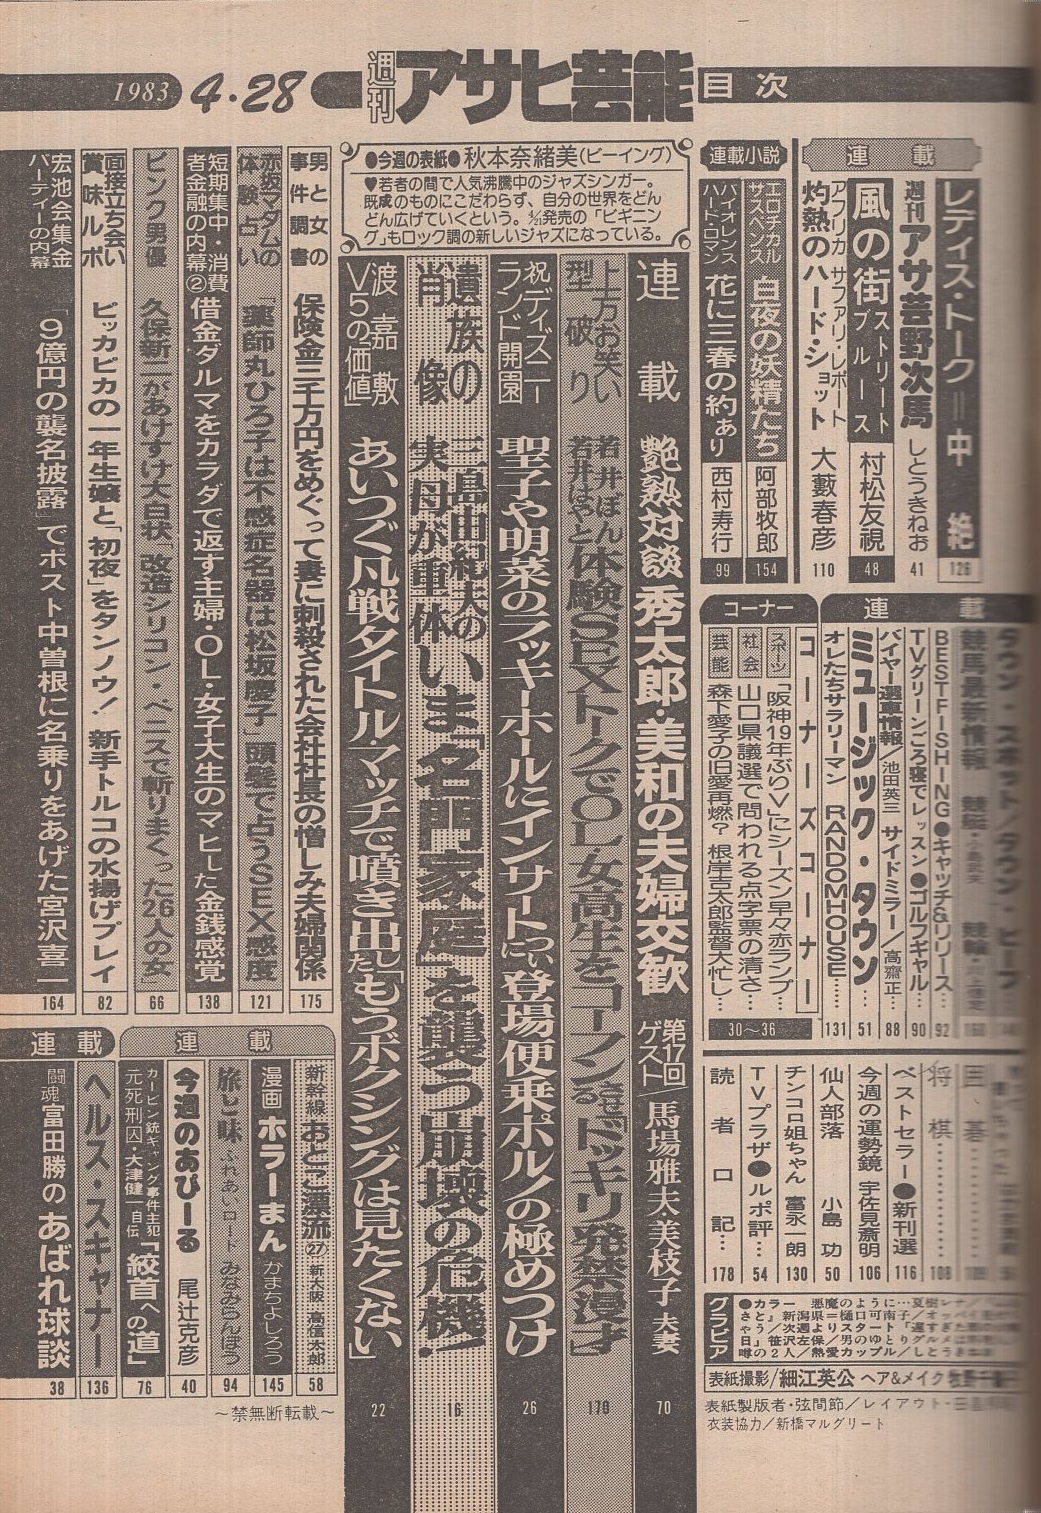 1983 4・28 週刊アサヒ芸能 目次
レディス・トーク=中絶 126
連載
週刊アサ芸野次馬 しとうきねお 41
風の街 ストリートブルース 村松友視 48
アフリカ サファリ・レポート
灼熱のハード・ショット 大藪春彦 110
連載小説
エロチカルサスペンス 白夜の妖精たち 阿部牧郎 154
バイオレンスハード・ロマン 花に三春の約あり 西村寿行 99
●今週の表紙●秋本奈緒美(ビーイング)
♥若者の間で人気沸騰中のジャズシンガー。
既成のものにこだわらず、自分の世界をどん
どん広げていくという。4/21発売の「ビギニン
グ」もロック調の新しいジャズになっている。
連載
タウン・スポット/タウン・ビーフ
競馬最新情報 競艇・小島 競輪・川上信定 160
BEST FISHING●キャッチ&リリース… 92
TVグリーンごろ寝でレッスン●ゴルフギャル… 90
バイヤー選車情報/池田英三 サイドミラー/高齋正… 88
ミュージック・タウン… 51
オレたちサラリーマン RANDOM HOUSE…… 131
コーナー
コーナーズコーナー
スポーツ 「阪神19年ぶりV」にシーズン早々赤ランプ…
社会 山口県議選で問われる点字票の清さ…
芸能 森下愛子の旧愛再燃? 根岸吉太郎監督大忙し…
30〜36
囲碁………… 109
将棋………… 108
ベストセラー●新刊選 116
今週の運勢鏡 宇佐見斎明 106
仙人部落 小島功 50
チンコロ姐ちゃん 富永一朗 130
TVプラザ●ルポ評… 54
読者ロ記… 178
グラビア
●カラー 悪魔のように…夏樹レナ/
さと」新潟県=樋口可南子/オッパ
ゃう/次週よりスタート「遅すぎた
日」笹沢左保/男のゆとりグルメは
噂の2人/熱愛カップル/しとうきねお
表紙撮影/細江英公 ヘア&メイク
表紙製版者・弦間節/レイアウト・田
衣装協力/新橋マルグリート
連載 艶熱対談 秀太郎・美和の夫婦交歓 第17回ゲスト/馬場雅太・美枝子・夫妻 70
上方お笑い型破り 若井ぼん 若井はやと 体験SEXトークでOL・女高生をコーフンさせる「ドッキリ発禁漫才」 170
祝ディズニーランド開園 聖子や明菜のラッキーホールにインサートについ登場便乗ポルノの極めつけ 26
遺族の肖像 三島由紀夫の実母が重体 いま「名門家庭」を襲う崩壊の危機! 16
渡嘉敷「V5の価値」 あいつぐ凡戦タイトル・マッチで噴き出した「もうボクシングは見たくない」 22
男と女の事件調書 保険金三千万円をめぐって妻に刺殺された会社社長の憎しみ夫婦関係 175
赤坂マダムの体験占い 「薬師丸ひろ子は不感症名器は松坂慶子」頭髪で占うSEX感度 121
短期集中・消費者金融の内幕② 借金ダルマをカラダで返す主婦・OL・女子大生のマヒした金銭感覚 138
ピンク男優 久保新二があけすけ大白状「改造シリコン・ペニスで斬りまくった26人の女」 66
面接立ち会い賞味ルポ ピッカピカの一年生嬢と「初夜」をタンノウ! 新手トルコの水揚げプレイ 82
宏池会集金パーティーの内幕 「9億円の襲名披露」でポスト中曽根に名乗りをあげた宮沢喜一 164
連載
新幹線おとこ漂流㉗ 新大阪 高信太郎 58
漫画 ホラーまん がまちよしろう 145
旅と味 ふれあいロード みなみらんぼう 94
今週のあぴーる 尾辻克彦 40
カービン銃ギャング事件主犯
元死刑囚・大津健一自伝 「絞首への道」 76
連載
ヘルス・スキャナー 136
闘魂 富田勝のあばれ球談 38
〜禁無断転載〜